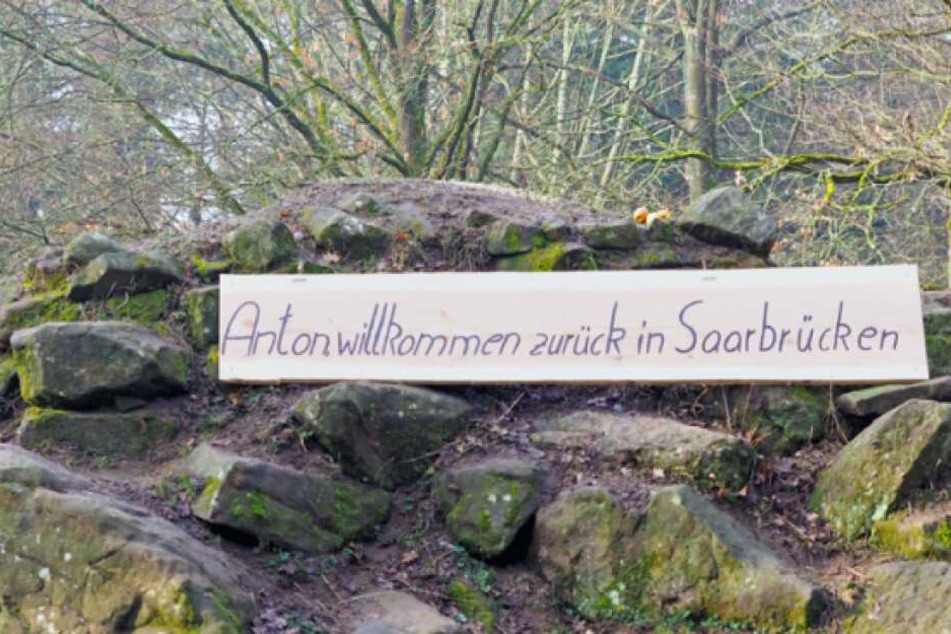 Anton, willkommen zurück in Saarbrücken